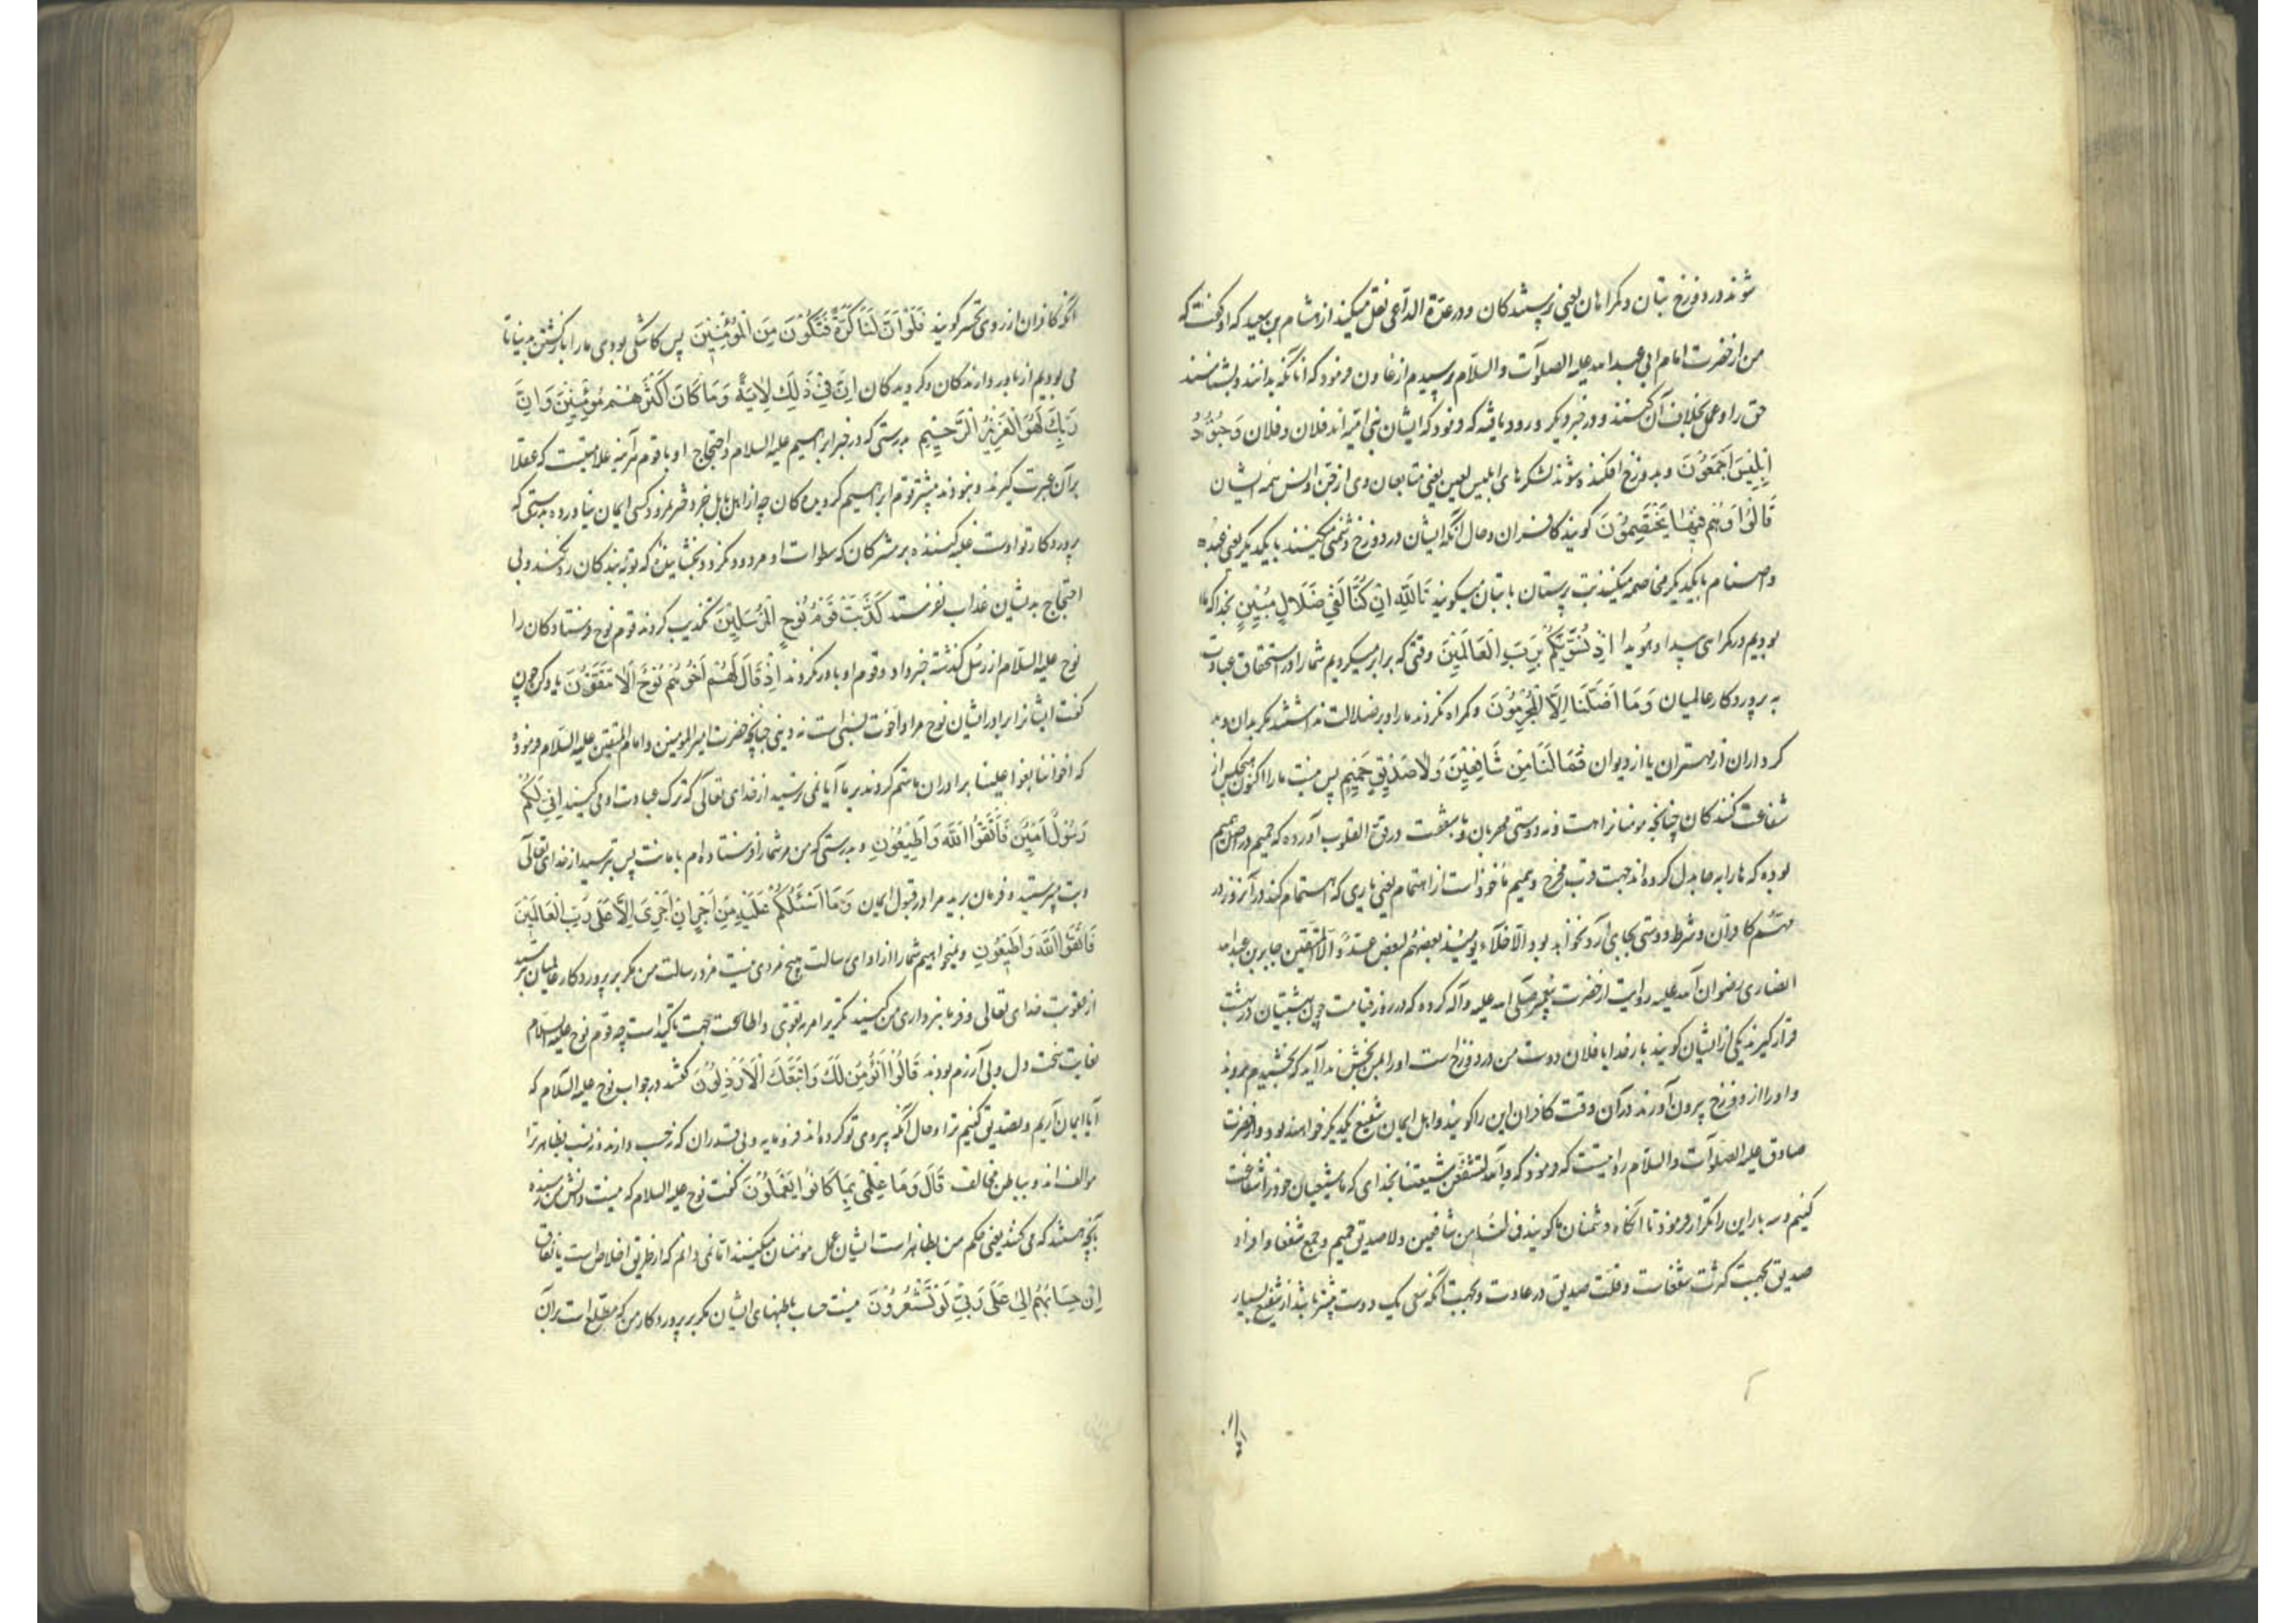 شوند در دوزخ بتان و گمراهان یعنی پرستندگان و در عدة الداعی نقل میکند از هشام بن سعید که او گفت که
من از حضرت امام ابی عبد الله علیه الصلوات والسلام پرسیدم از غاون فرمود که آنانکه بدانند و بشناسند
حق را و عمل بخلاف آن کنند و در خبر دیگر ورود یافته که فرمود که ایشان بنی امیه اند فلان و فلان وَجُنُودُ
اِبْلِیسَ اَجْمَعُونَ و بدوزخ افکنده شوند لشکرهای ابلیس لعین یعنی متابعان وی از جن و انس همه ایشان
قَالُوا وَهُمْ فِیهَا یَخْتَصِمُونَ گویند کافران و حال آنکه ایشان در دوزخ دشمنی میکنند با یکدیگر یعنی عبده
و اصنام با یکدیگر مخاصمه میکنند بت پرستان با بتان میگویند تَاللّٰهِ اِنْ کُنَّا لَفِی ضَلَالٍ مُبِینٍ بخدا که ما
بودیم در گمراهی پیدا و هویدا اِذْ نُسَوِّیکُمْ بِرَبِّ الْعَالَمِینَ وقتی که برابر میکردیم شما را در استحقاق عبادت
به پروردگار عالمیان وَمَا اَضَلَّنَا اِلَّا الْمُجْرِمُونَ و گمراه نکردند ما را و بر ضلالت نداشتند مگر بدان و بد
کرداران از مهتران یا از دیوان فَمَا لَنَا مِنْ شَافِعِینَ وَلَا صَدِیقٍ حَمِیمٍ پس نیست ما را اکنون هیچکس از
شفاعت کنندگان چنانچه مومنانرا هست و نه دوستی مهربان و با شفقت در قوة القلوب آورده که حمیم در اصل همیم
بوده که ها را به حا بدل کرده اند جهت قرب مخرج و همیم ماخوذ است از اهتمام یعنی یاری که اهتمام کند در آنروز در
مهم کافران و شرط دوستی بجای آرد نخواهد بود الاخلاء یومئذ بعضهم لبعض عدو الا المتقین جابر بن عبد الله
انصاری رضوان الله علیه روایت از حضرت پیغمبر صلی الله علیه وآله کرده که در روز قیامت چون بهشتیان در بهشت
قرار گیرند یکی از ایشان گویند بار خدایا فلان دوست من در دوزخ است او را بمن بخش ندا آید که بخشیدم بروید
و او را از دوزخ بیرون آورند در آن وقت کافران این را گویند و اهل ایمان شفیع یکدیگر خواهند بود و از حضرت
صادق علیه الصلوات والسلام روایتست که فرمود که والله لنشفعن شیعتنا بخدای که ما شیعیان خود را شفاعت
کنیم و سه بار این را تکرار فرمود تا آنگاه دشمنان ما گویند فما لنا من شافعین ولا صدیق حمیم و جمع شفعا و افراد
صدیق بجهت کثرت شفعاست و قلت صدیق در عادت و بجهت آنکه سعی یک دوست بیشتر باشد از شفیع بسیار
آنکه کافران از روی تحسر گویند فَلَوْ اَنَّ لَنَا کَرَّةً فَنَکُونَ مِنَ الْمُؤْمِنِینَ پس کاشکی بودی ما را باز گشتن بدنیا تا
می بودیم از باور دارندگان و گرویدگان اِنَّ فِی ذٰلِكَ لَاٰیَةً وَمَا کَانَ اَکْثَرُهُمْ مُؤْمِنِینَ وَاِنَّ
رَبَّكَ لَهُوَ الْعَزِیزُ الرَّحِیمُ بدرستی که در خبر ابراهیم علیه السلام و احتجاج او با قوم هر آینه علامتیست که عقلا
بر آن عبرت گیرند و نبودند بیشتر قوم ابراهیم گرویدگان چه از اهل بابل خبر دختر نمرود کسی ایمان نیاورده بدرستی که
پروردگار تو اوست غلبه کننده بر مشرکان که سطوات او مردود نکردد و بخشاینده که توبه بندگان رد نکند و بی
احتجاج بدیشان عذاب نفرستد کَذَّبَتْ قَوْمُ نُوحٍ الْمُرْسَلِینَ تکذیب کردند قوم نوح فرستادگان را
نوح علیه السلام از رسل گذشته خبر داد و قوم او باور نکردند اِذْ قَالَ لَهُمْ اَخُوهُمْ نُوحٌ اَلَا تَتَّقُونَ یاد کن چون
گفت ایشانرا برادر ایشان نوح مراد اخوت نسبی است نه دینی چنانچه حضرت امیر المومنین و امام المتقین علیه السلام فرموده
که اخواننا بغوا علینا برادران ما ستم کردند بر ما آیا نمی ترسید از خدای تعالی که ترک عبادت او می کنید اِنِّی لَکُمْ
رَسُولٌ اَمِینٌ فَاتَّقُوا اللّٰهَ وَاَطِیعُونِ و بدرستی که من مر شما را فرستاده ام با مانت پس بترسید از خدای تعالی
و بت مپرستید و فرمان برید مرا در قبول ایمان وَمَا اَسْئَلُکُمْ عَلَیْهِ مِنْ اَجْرٍ اِنْ اَجْرِیَ اِلَّا عَلٰی رَبِّ الْعَالَمِینَ
فَاتَّقُوا اللّٰهَ وَاَطِیعُونِ و نمیخواهیم شما را از ادای رسالت هیچ مزدی نیست مزد رسالت من مگر بر پروردگار عالمیان بترسید
از عقوبت خدای تعالی و فرمانبرداری من کنید تکریر امر به تقوی و اطاعت جهت تاکید است چه قوم نوح علیه السلام
بغایت سخت دل و بی آزرم بودند قَالُوا اَنُؤْمِنُ لَكَ وَاتَّبَعَكَ الْاَرْذَلُونَ گفتند در جواب نوح علیه السلام که
آیا ایمان آریم و تصدیق کنیم ترا و حال آنکه پیروی تو کرده اند فرومایه و بی قدران که نه حسب دارند و نه نسب بظاهر ترا
موالف اند و بباطن مخالف قَالَ وَمَا عِلْمِی بِمَا کَانُوا یَعْمَلُونَ گفت نوح علیه السلام که نیست دانش من رسیده
بآنچه هستند که می کنند یعنی حکم من بظاهر است ایشان عمل مومنان میکنند اما نمی دانم که از طریق اخلاص است یا نفاق
اِنْ حِسَابُهُمْ اِلَّا عَلٰی رَبِّی لَوْ تَشْعُرُونَ نیست حساب باطنهای ایشان مگر بر پروردگار من که مطلع است بر آن